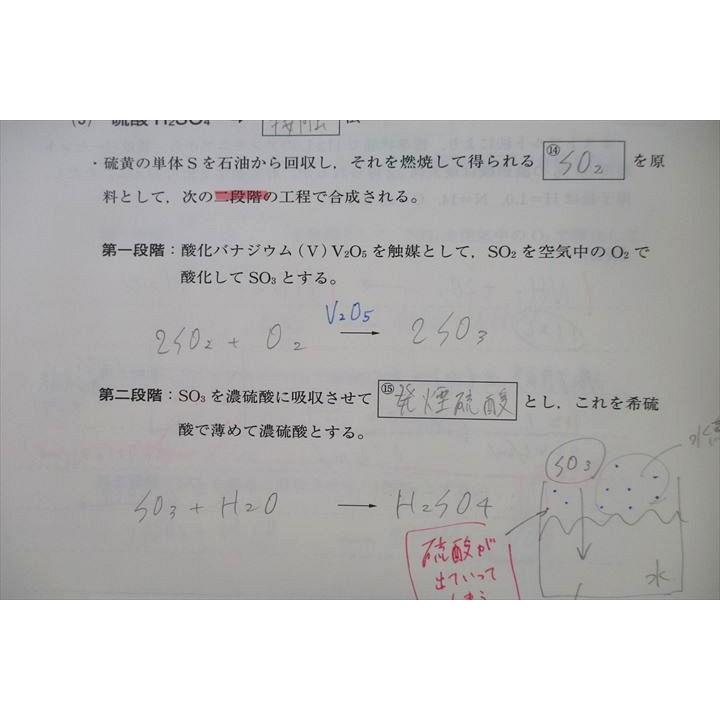 (3) 硫酸 H₂SO₄ → 接触 法
・硫黄の単体Sを石油から回収し，それを燃焼して得られる ⑭ SO₂ を原
料として，次の二段階の工程で合成される。
第一段階：酸化バナジウム(V)V₂O₅を触媒として，SO₂を空気中のO₂で
酸化してSO₃とする。
V₂O₅
2SO₂ + O₂ → 2SO₃
第二段階：SO₃を濃硫酸に吸収させて ⑮ 発煙硫酸 とし，これを希硫
酸で薄めて濃硫酸とする。
SO₃ + H₂O → H₂SO₄
SO₃
水
硫酸が
出ていって